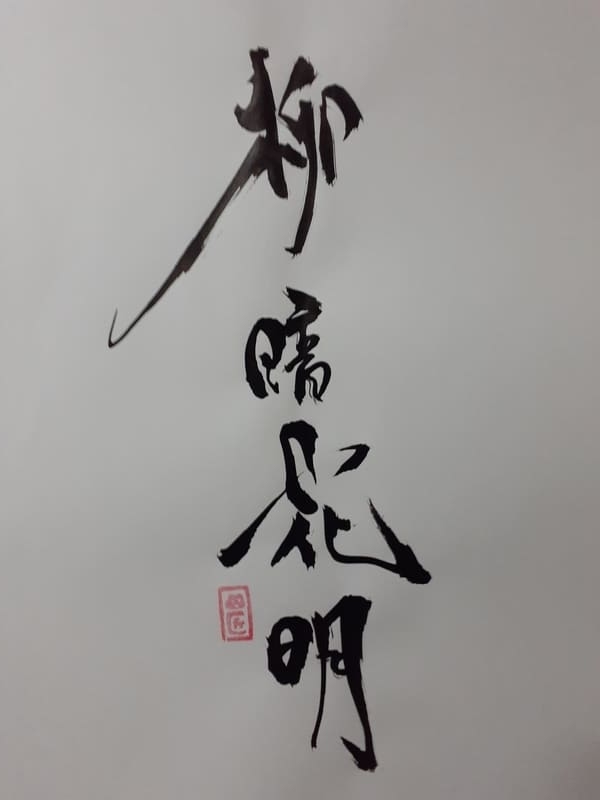 柳暗花明